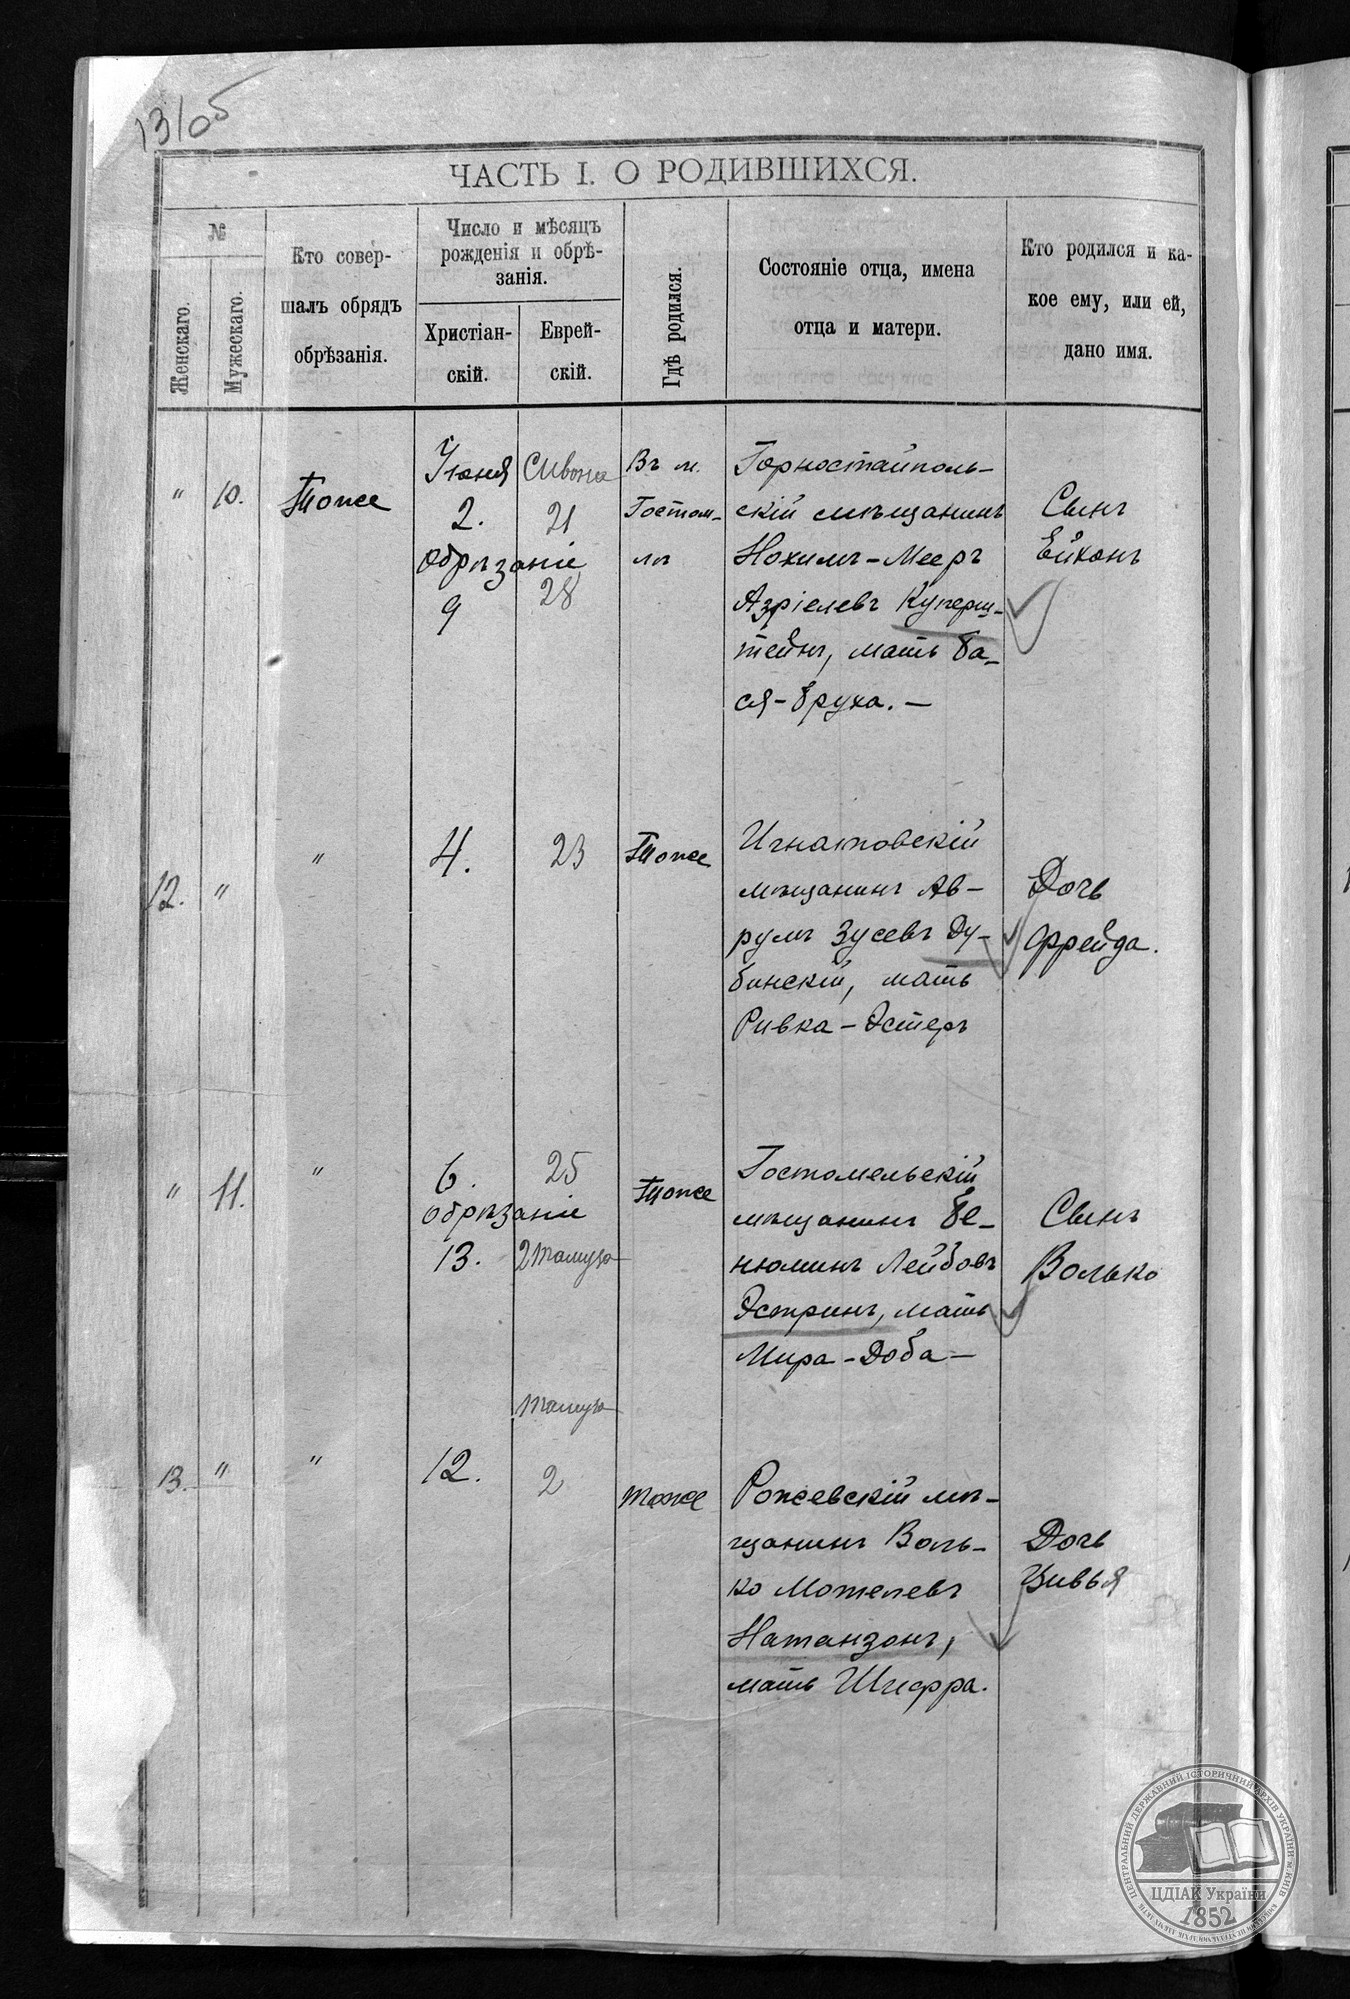 13/05
ЧАСТЬ I. О РОДИВШИХСЯ.
№
Женскаго.
Мужескаго.
Кто совер-
шалъ обрядъ
обрѣзанія.
Число и мѣсяцъ
рожденія и обрѣ-
занія.
Христіан-
скій.
Еврей-
скій.
Гдѣ родился.
Состояніе отца, имена
отца и матери.
Кто родился и ка-
кое ему, или ей,
дано имя.
" 10. Тоже
Іюня
2.
Обрѣзаніе
9
Сивона
21
28
Въ м.
Гостом-
лѣ
Горностайполь-
скій мѣщанинъ
Нохимъ-Мееръ
Азріелевъ Куперш-
тейнъ, мать Ба-
ся-Бруха. —
Сынъ
Ейхонъ
12. " " 4. 23 Тоже
Игнатовскій
мѣщанинъ Ав-
румъ Зусевъ Ду-
бинскій, мать
Ривка-Эстеръ
Дочь
Фрейда.
" 11. " 6. 25 Тоже
Обрѣзаніе
13. 2 Тамуза
Гостомельскій
мѣщанинъ Бе-
нюминъ Лейбовъ
Эстринъ, мать
Мира-Доба —
Сынъ
Волько
Тамуза
13. " " 12. 2 Тоже
Рожевскій мѣ-
щанинъ Воль-
ко Мотелевъ
Натанзонъ,
мать Шифра.
Дочь
Цивья
ЦЕНТРАЛЬНИЙ ДЕРЖАВНИЙ ІСТОРИЧНИЙ АРХІВ УКРАЇНИ м. КИЇВ
ЦДІАК України
1852